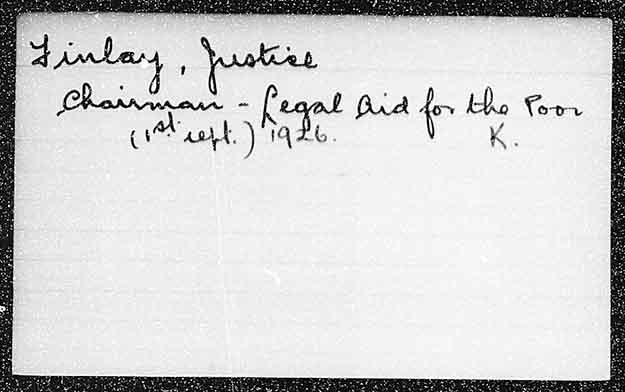 Finlay, Justice
Chairman - Legal Aid for the Poor
(1st. rept.) 1926. K.